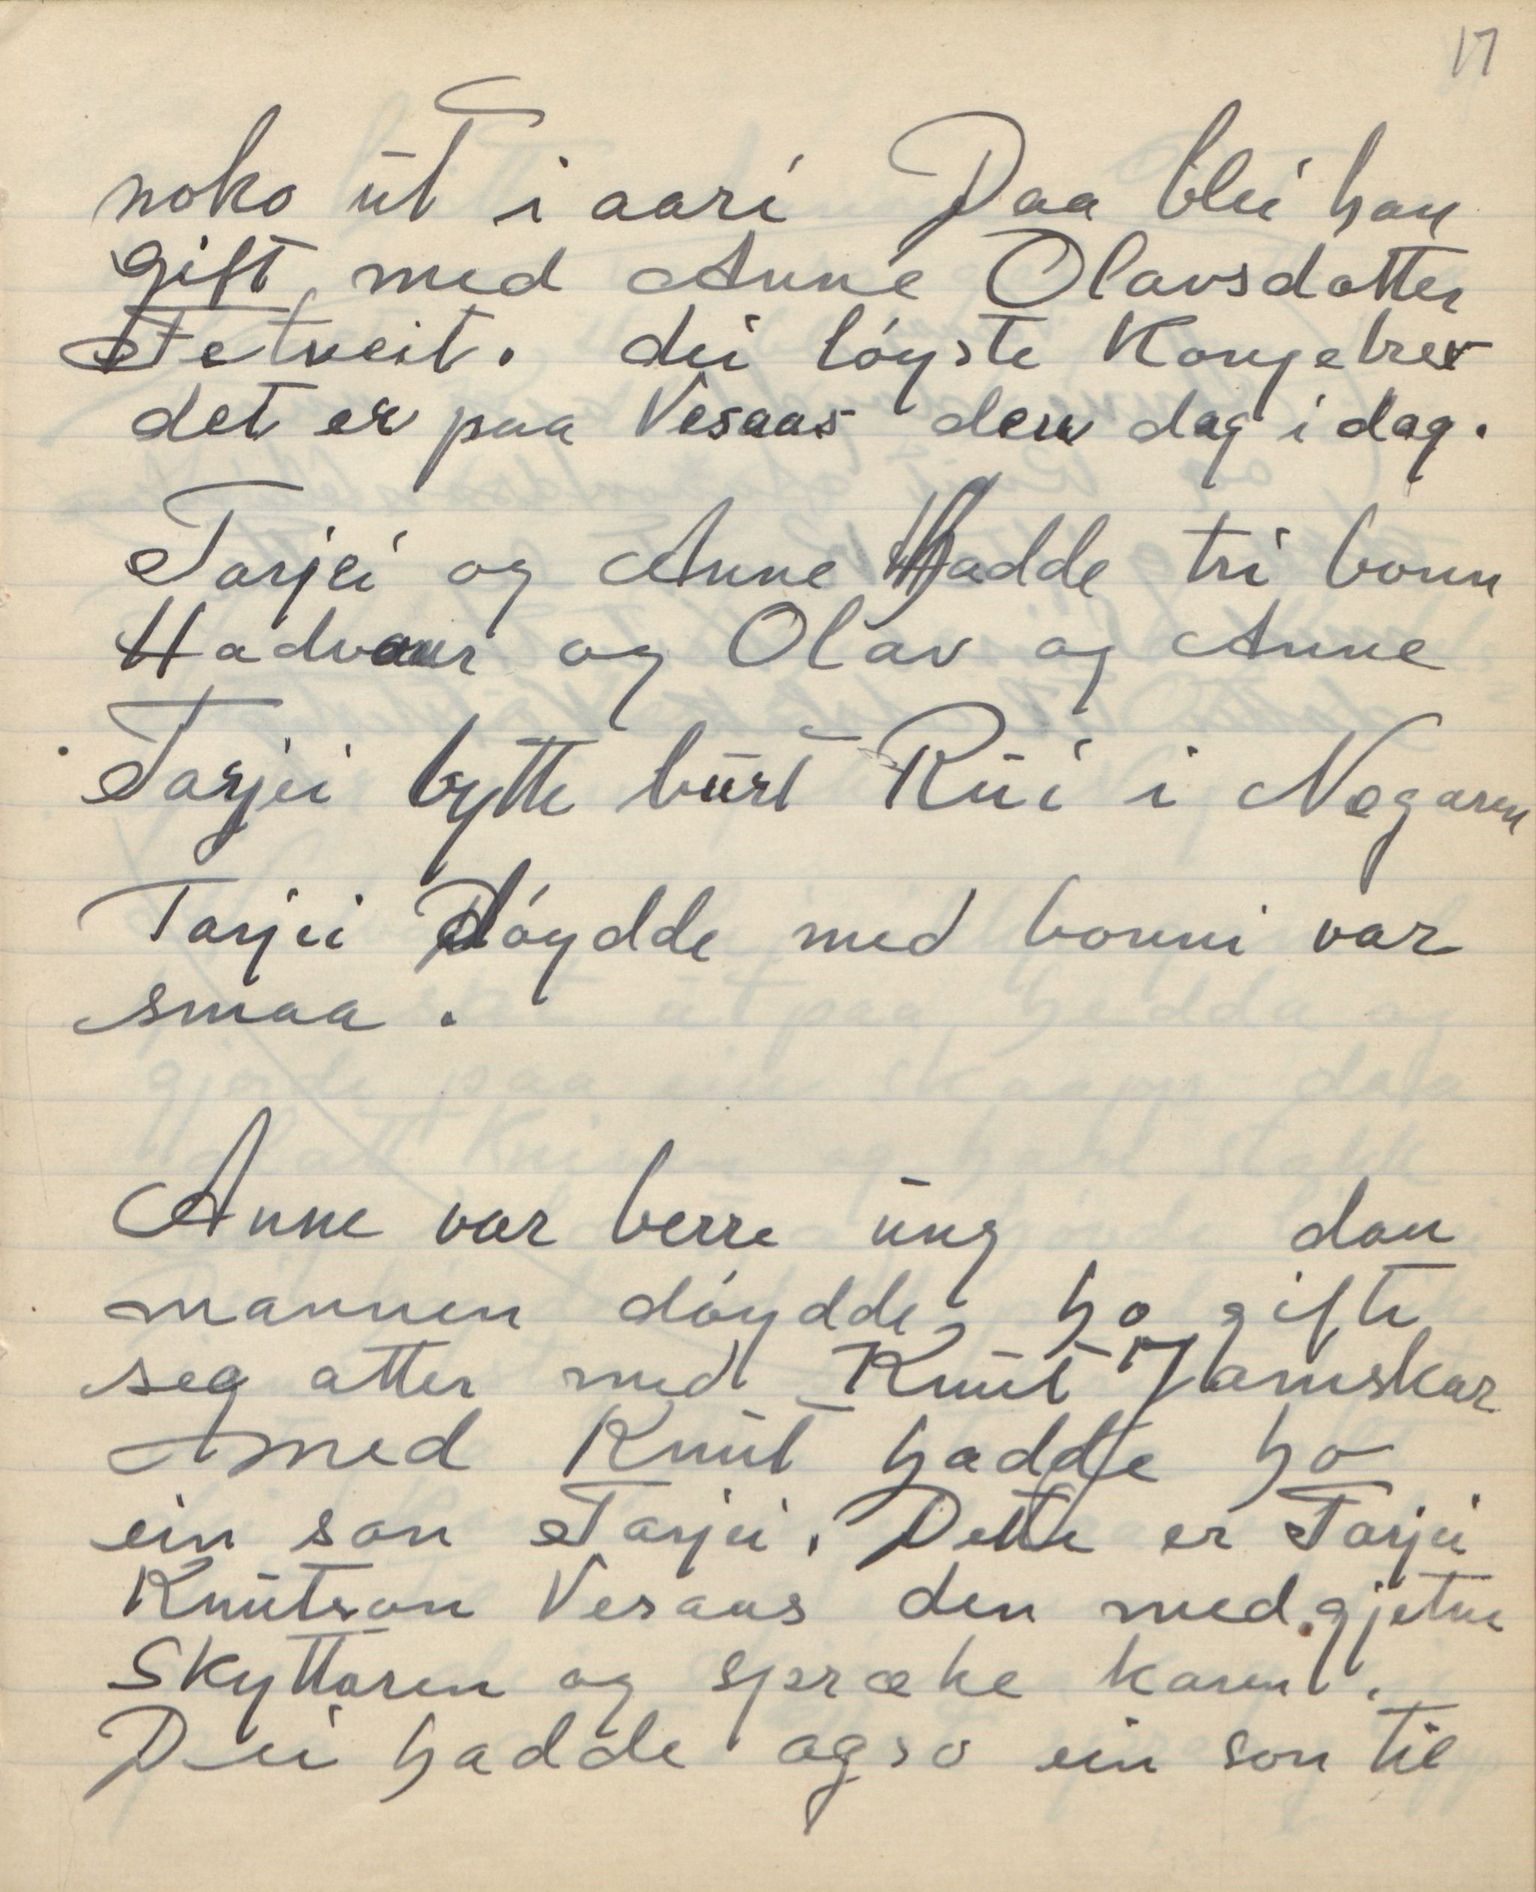 17
noko út i aari Daa blei han
gift med Anne Olavsdotter
Tetveit. dei lóyste Kongebrev
det er paa Vesaas den dag i dag.
Tarjei og Anne Hadde tri bonn
Hadvaur og Olav og Anne
Tarjei bytte būrt Rūi i Negaren
Tarjei dóydde med bonni var
smaa.
Anne var berre ūng dan
mannen dóydde, ho gifte
seg atter med Knūt Jamskar
med Knūt hadde ho
ein son Tarjei. Dette er Tarjei
Knūtson Vesaas den medgjetne
Skyttaren og spræke karen.
Dei hadde ogso ein son til